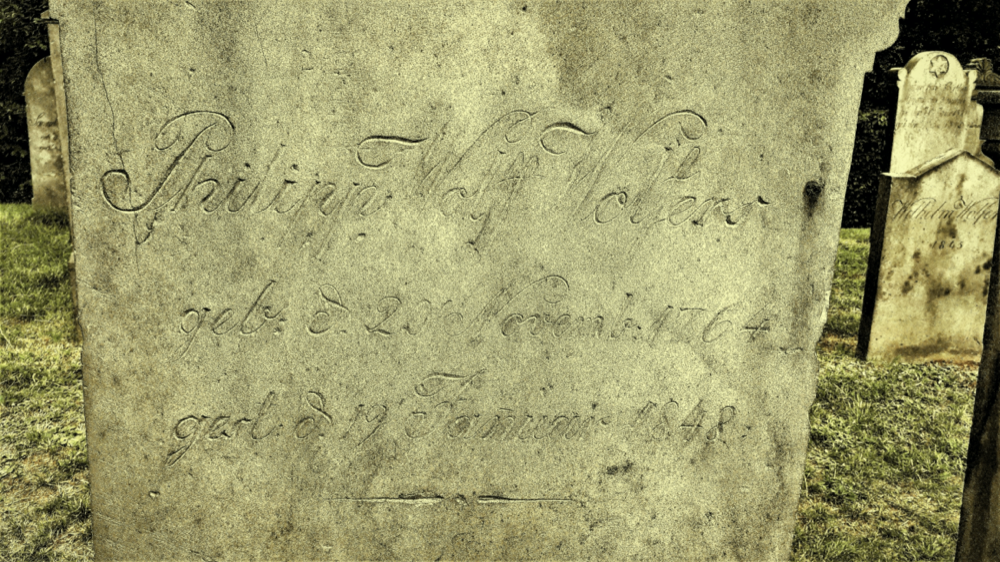 Philipp Wolff Wolfers
geb. d. Novemb. 1764
gest. d. 19 Januar 1848.
1843